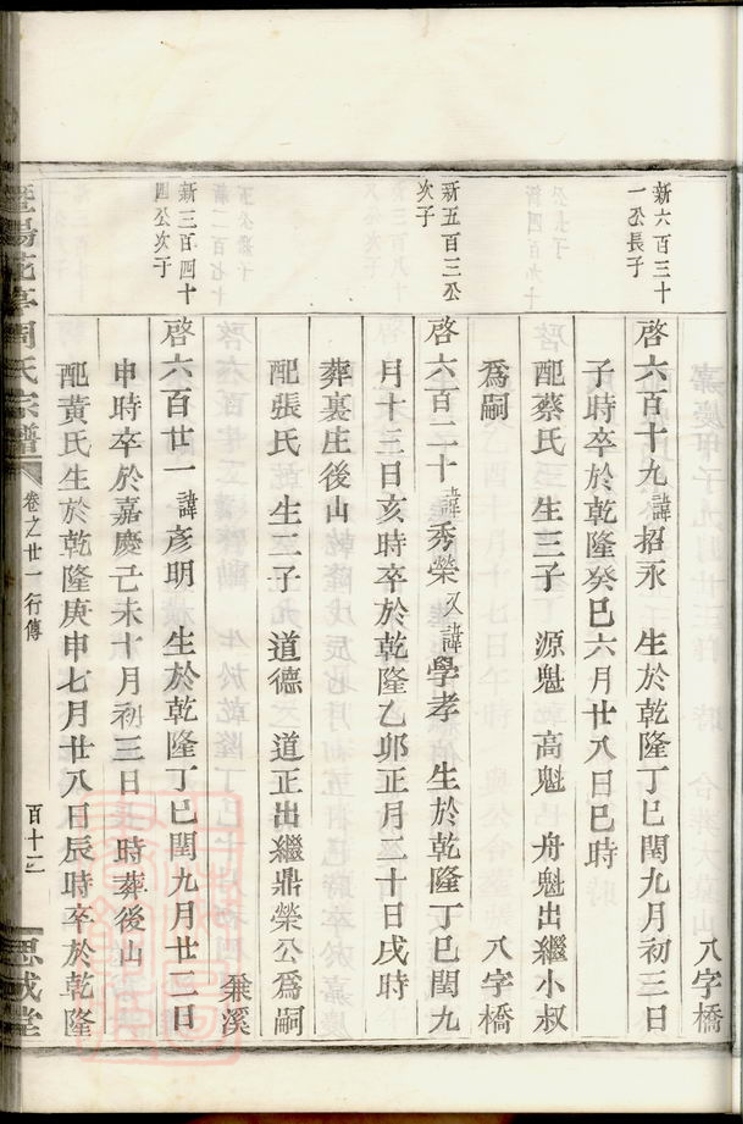 八字橋
新六百三十
一公長子
啓六百十九諱招永 生於乾隆丁巳閏九月初三日
子時卒於乾隆癸巳六月廿八日巳時
配蔡氏 生三子 源魁 高魁 舟魁出繼小叔
爲嗣 八字橋
新五百三公
次子
啓六百二十諱秀榮又諱學孝 生於乾隆丁巳閏九
月十三日亥時卒於乾隆乙卯正月二十日戌時
葬裏庄後山
配張氏 生二子 道德 道正出繼鼎榮公爲嗣
乗溪
新三百四十
四公次子
啓六百廿一諱彥明 生於乾隆丁巳閏九月廿二日
申時卒於嘉慶己未十月初三日 時葬後山
配黃氏生於乾隆庚申七月廿八日辰時卒於乾隆
暨陽花亭周氏宗譜
卷之廿一行傳
百十二
思成堂